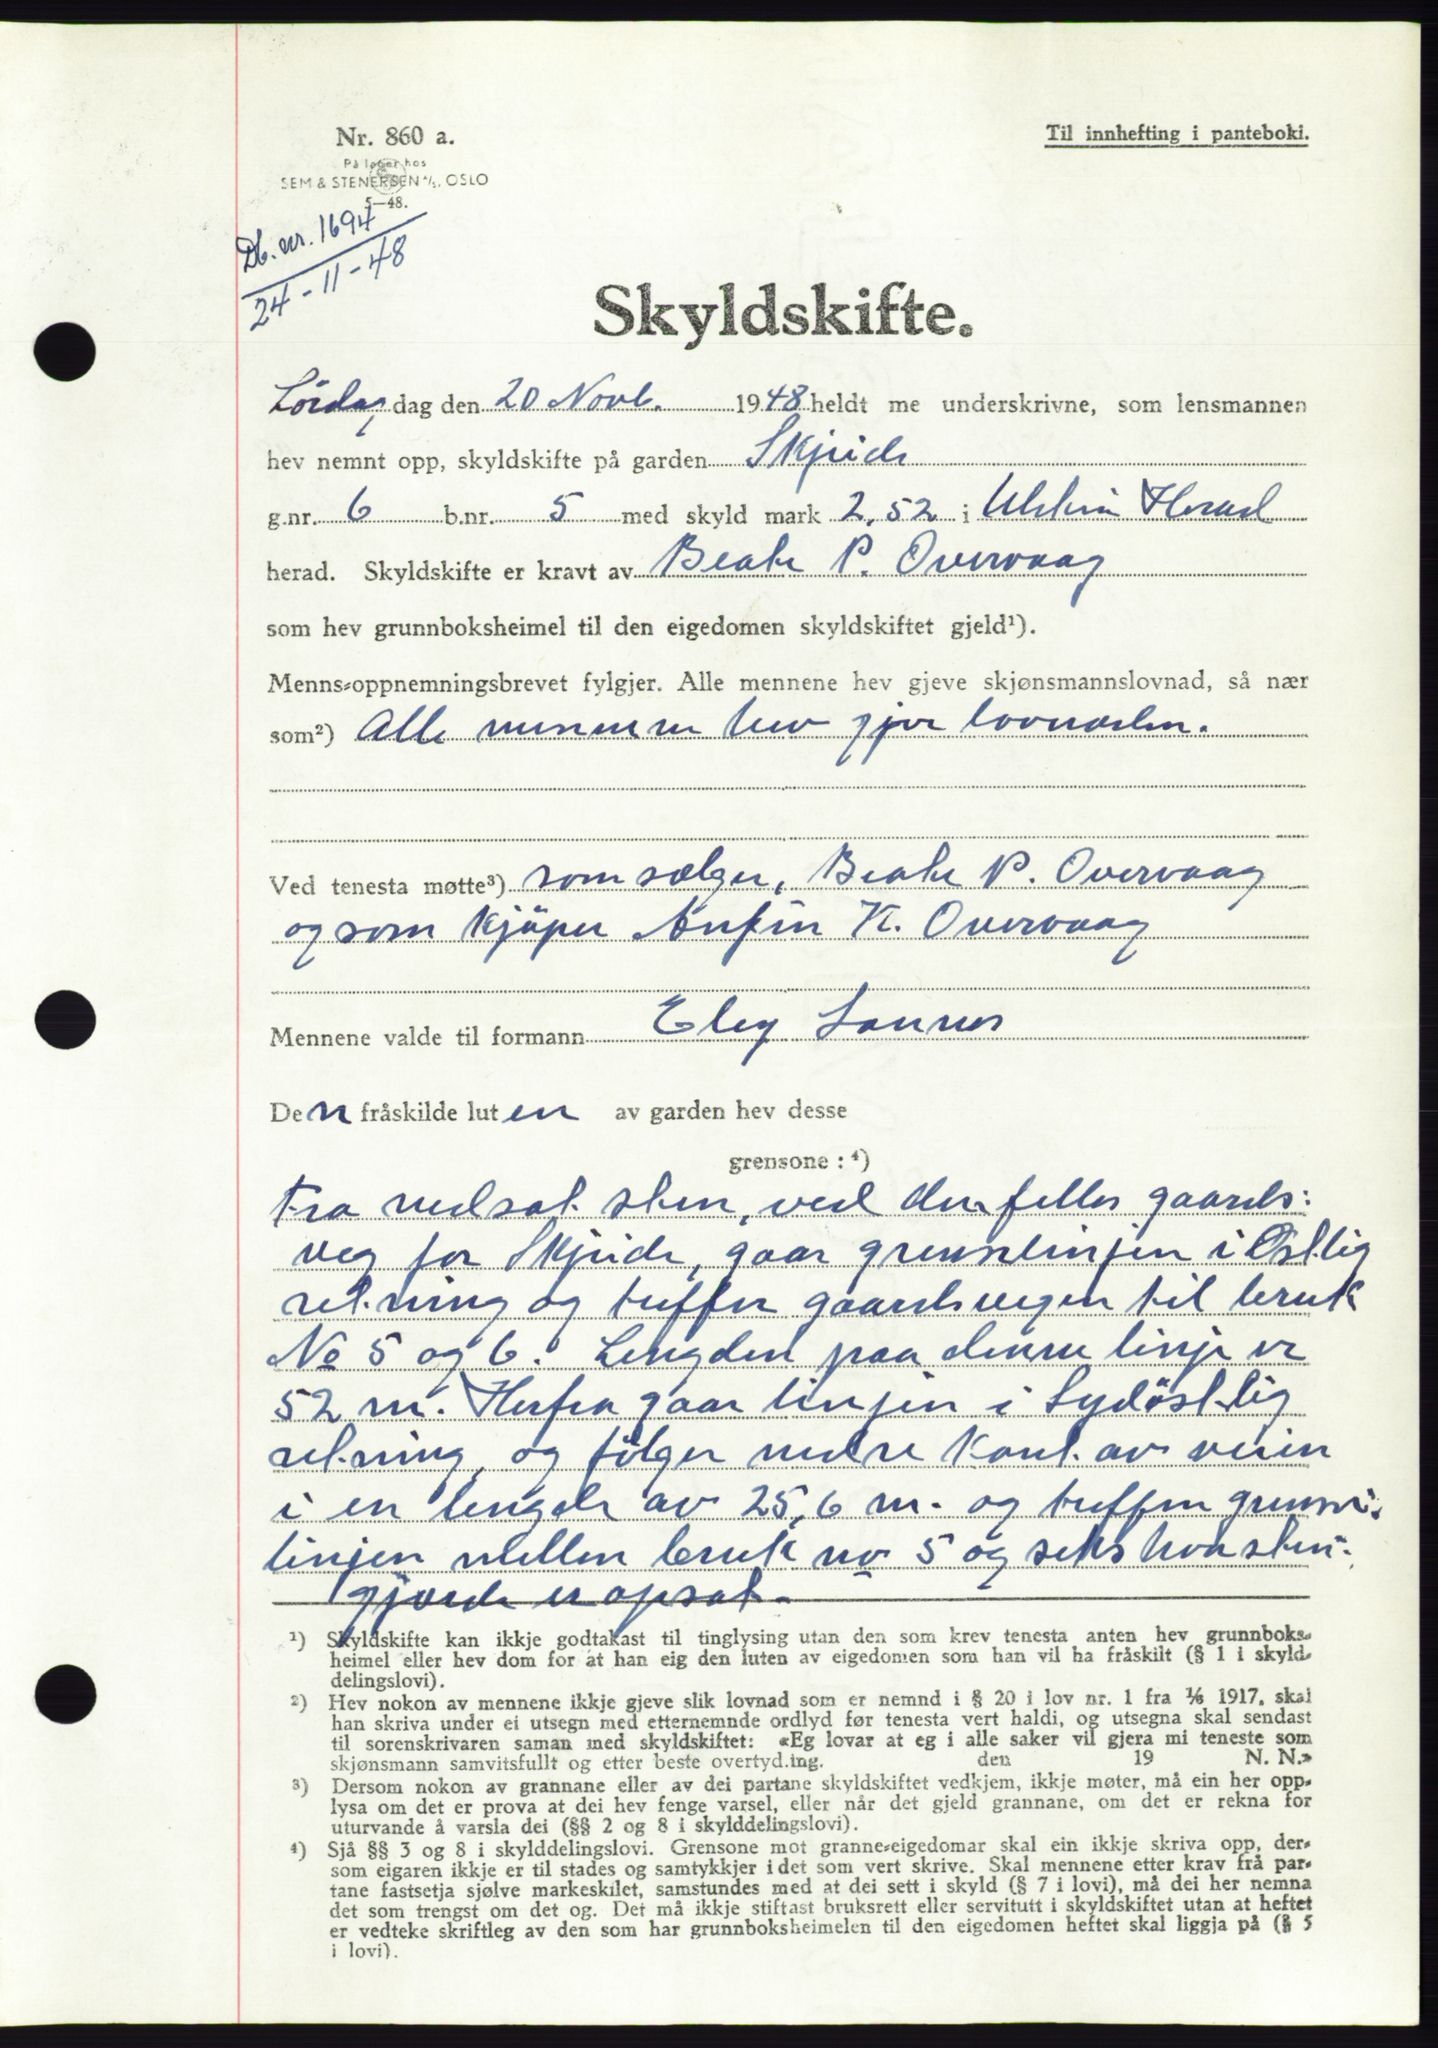 Nr. 860 a.
På lager hos
SEM & STENERSEN A/S, OSLO
5—48.
Til innhefting i panteboki.
Db. nr. 1694
24-11-48
Skyldskifte.
Lördag dag den 20 Novb. 1948 heldt me underskrivne, som lensmannen
hev nemnt opp, skyldskifte på garden Skjeide
g.nr. 6 b.nr. 5 med skyld mark 2,52 i Ulstein Herad
herad. Skyldskifte er kravt av Beate P. Overvaag
som hev grunnboksheimel til den eigedomen skyldskiftet gjeld¹).
Menns-oppnemningsbrevet fylgjer. Alle mennene hev gjeve skjønsmannslovnad, så nær
som²) Alle mennene hev gjeve lovnaden.
Ved tenesta møtte³) som sælger, Beate P. Overvaag
og som kjöper Anfin K. Overvaag
Mennene valde til formann Eley
Den fråskilde luten av garden hev desse
grensone : ⁴)
Fra nedsat sten, ved den felles gaards:
veg for Skjeide, gaar grenselinjen i Östlig
retning og treffer gaardsvegen til bruk
No 5 og 6. Lengden paa denne linje er
52 m. Herfra gaar linjen i Sydöstlig
retning, og fölger nedre kant av veien
i en lengde av 25,6 m. og treffer grense:
linjen mellem bruk no 5 og seks hvor sten:
gjerde er opsat.
¹) Skyldskifte kan ikkje godtakast til tinglysing utan den som krev tenesta anten hev grunnboks-
heimel eller hev dom for at han eig den luten av eigedomen som han vil ha fråskilt (§ 1 i skyld-
delingslovi).
²) Hev nokon av mennene ikkje gjeve slik lovnad som er nemnd i § 20 i lov nr. 1 fra 1/6 1917, skal
han skriva under ei utsegn med etternemnde ordlyd før tenesta vert haldi, og utsegna skal sendast
til sorenskrivaren saman med skyldskiftet: «Eg lovar at eg i alle saker vil gjera mi teneste som
skjønsmann samvitsfullt og etter beste overtyd.ing. den 19 N. N.»
³) Dersom nokon av grannane eller av dei partane skyldskiftet vedkjem, ikkje møter, må ein her opp-
lysa om det er prova at dei hev fenge varsel, eller når det gjeld grannane, om det er rekna for
uturvande å varsla dei (§§ 2 og 8 i skylddelingslovi).
⁴) Sjå §§ 3 og 8 i skylddelingslovi. Grensone mot granne-eigedomar skal ein ikkje skriva opp, der-
som eigaren ikkje er til stades og samtykkjer i det som vert skrive. Skal mennene etter krav frå par-
tane fastsetja sjølve markeskilet, samstundes med at dei sett i skyld (§ 7 i lovi), må dei her nemna
det som trengst om det og. Det må ikkje stiftast bruksrett eller servitutt i skyldskiftet utan at heftet
er vedteke skriftleg av den som har grunnboksheimelen til den eigedomen heftet skal liggja på (§ 5
i lovi).